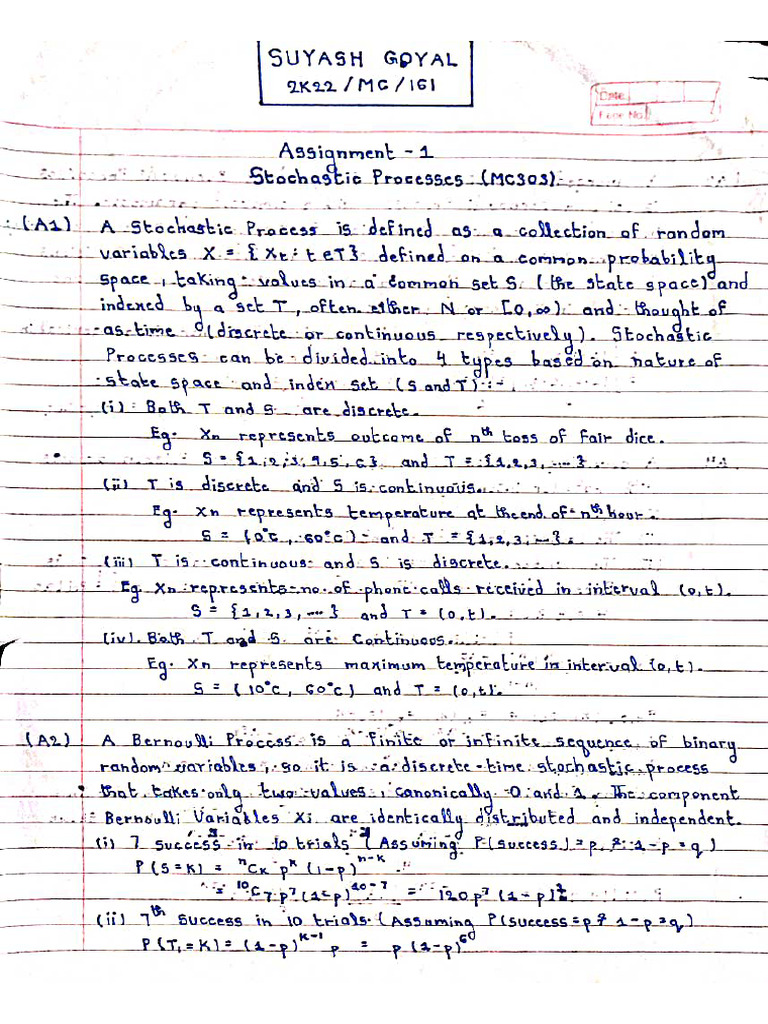 SUYASH GOYAL
2K22/MC/161
Date
Page No.
Assignment - 1
Stochastic Processes (MC303)
(A1) A Stochastic Process is defined as a collection of random
variables X = { Xt : t ∈ T} defined on a common probability
space, taking values in a common set S (the state space) and
indexed by a set T, often either N or [0,∞) and thought of
as time (discrete or continuous respectively). Stochastic
Processes can be divided into 4 types based on nature of
state space and index set (S and T) :-
(i) Both T and S are discrete.
Eg. Xn represents outcome of nth toss of fair dice.
S = {1,2,3,4,5,6} and T = {1,2,3, ....}
(ii) T is discrete and S is continuous.
Eg. Xn represents temperature at the end of nth hour.
S = (0°c, 60°c) and T = {1,2,3, ...}.
(iii) T is continuous and S is discrete.
Eg Xn represents no. of phone calls received in interval (0,t).
S = {1,2,3, ....} and T = (0,t).
(iv) Both T and S are Continuous.
Eg. Xn represents maximum temperature in interval (0,t).
S = (10°c, 60°c) and T = (0,t).
(A2) A Bernoulli Process is a finite or infinite sequence of binary
random variables, so it is a discrete-time stochastic process
that takes only two values, canonically 0 and 1. The component
Bernoulli Variables Xi are identically distributed and independent.
(i) 7 success in 10 trials (Assuming P(success) = p & 1-p = q)
P(S=K) = ⁿCₖ pᵏ (1-p)ⁿ⁻ᵏ
= ¹⁰C₇ p⁷ (1-p)¹⁰⁻⁷ = 120 p⁷ (1-p)³
(ii) 7th success in 10 trials (Assuming P(success = p & 1-p = q)
P(T₁=K) = (1-p)ᴷ⁻¹ p = p (1-p)⁶